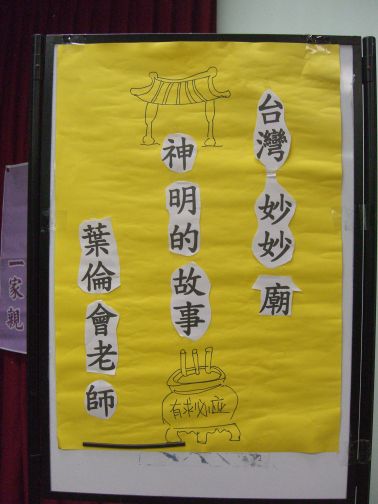 台灣妙妙廟
神明的故事
葉倫會老師
有求必應
一家親